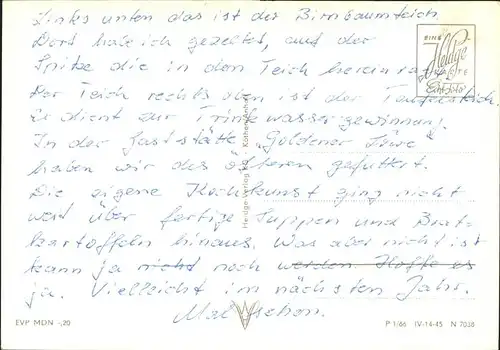 Links unten das ist der Birnbaumteich.
Dort habe ich gezeltet, auf der
Spitze die in den Teich hereinragt.
Der Teich rechts oben ist der Teufelsteich.
Er dient zur Trinkwassergewinnung!
In der Gaststätte "Goldener Löwe"
haben wir des öfteren gefuttert.
Die eigene Kochkunst ging nicht
weit über fertige Suppen und Brat-
kartoffeln hinaus. Was aber nicht ist
kann ja nicht noch werden. Hoffe es
ja. Vielleicht im nächsten Jahr.
Mal sehen.
EINE
Heldge
KARTE
Echt Foto
Heldge-Verlag KG · Köthen (Anhalt)
EVP MDN -,20
P 1/66 IV-14-45 N 7038